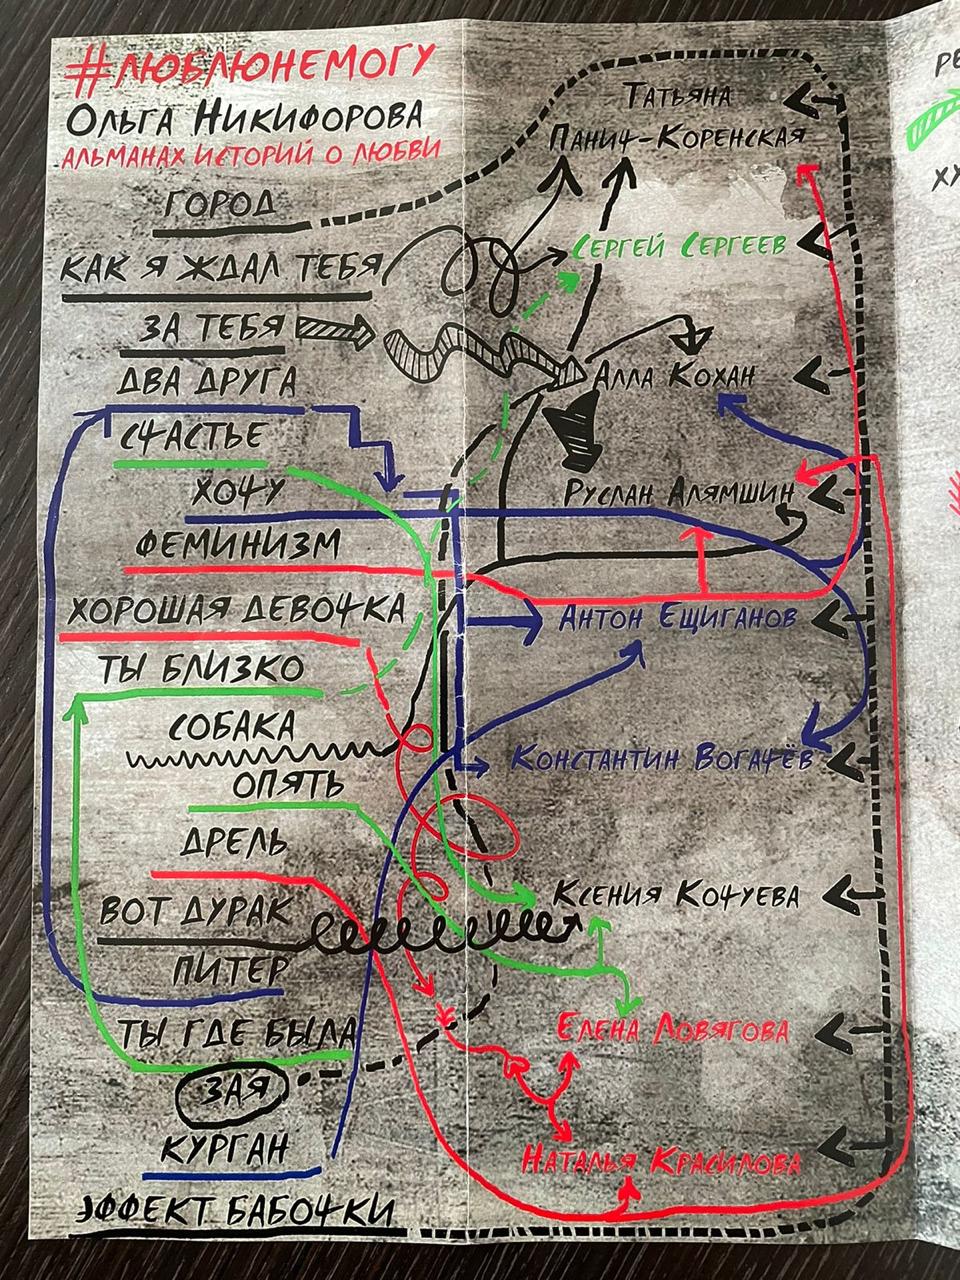 #ЛЮБЛЮНЕМОГУ
ОЛЬГА НИКИФОРОВА
АЛЬМАНАХ ИСТОРИЙ О ЛЮБВИ
ГОРОД
КАК Я ЖДАЛ ТЕБЯ
ЗА ТЕБЯ
ДВА ДРУГА
СЧАСТЬЕ
ХОЧУ
ФЕМИНИЗМ
ХОРОШАЯ ДЕВОЧКА
ТЫ БЛИЗКО
СОБАКА
ОПЯТЬ
ДРЕЛЬ
ВОТ ДУРАК
ПИТЕР
ТЫ ГДЕ БЫЛА
ЗАЯ
КУРГАН
ЭФФЕКТ БАБОЧКИ
ТАТЬЯНА
ПАНИЧ-КОРЕНСКАЯ
СЕРГЕЙ СЕРГЕЕВ
АЛЛА КОХАН
РУСЛАН АЛЯМШИН
АНТОН ЕЩИГАНОВ
КОНСТАНТИН ВОГАЧЁВ
КСЕНИЯ КОЧУЕВА
ЕЛЕНА ЛОВЯГОВА
НАТАЛЬЯ КРАСИЛОВА